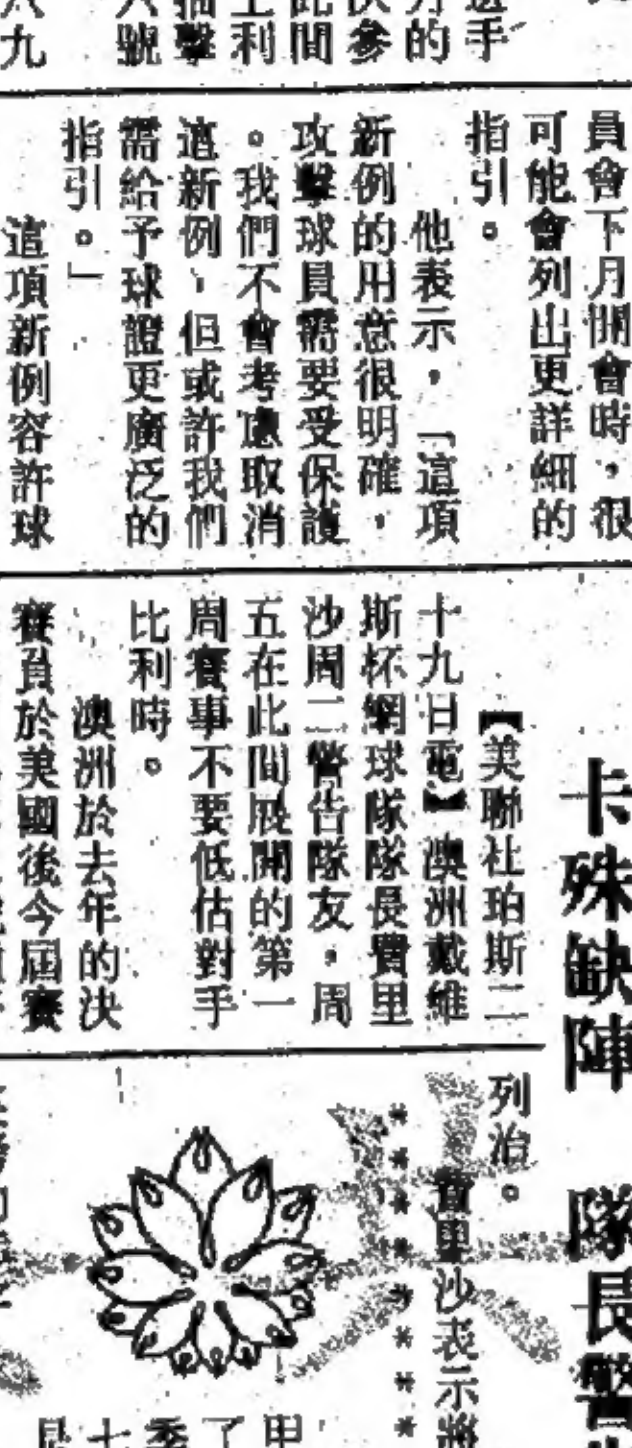 手
的
參
此間
利
擊
號
九
員會下月開會時，很
可能會列出更詳細的
指引。
他表示，「這項
新例的用意很明確，
攻擊球員需要受保護
。我們不會考慮取消
這新例，但或許我們
需給予球證更廣泛的
指引。」
這項新例容許球
卡殊缺陣 隊長警
【美聯社珀斯二
十九日電】澳洲戴維
斯杯網球隊隊長費里
沙周二警告隊友，周
五在此間展開的第一
周賽事不要低估對手
比利時。
澳洲於去年的決
賽負於美國後今屆賽
列治。
費里沙表示將
甲
了
季
七